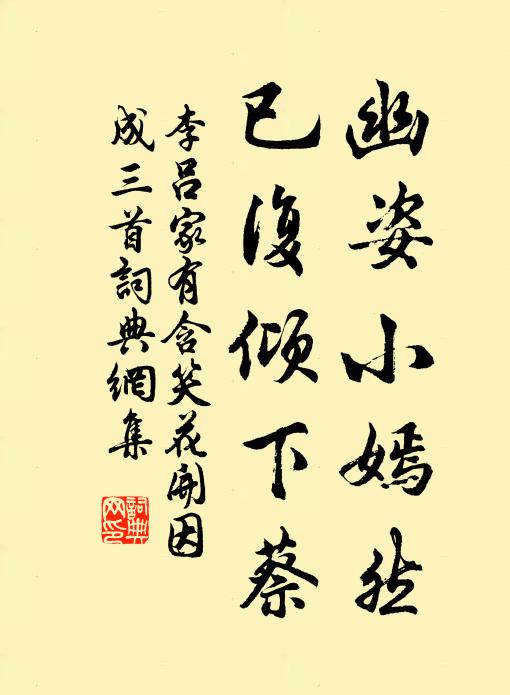 幽姿小嫣然
已復傾下蔡
李呂家有含笑花開因
成三首詞典網集
詞典网印